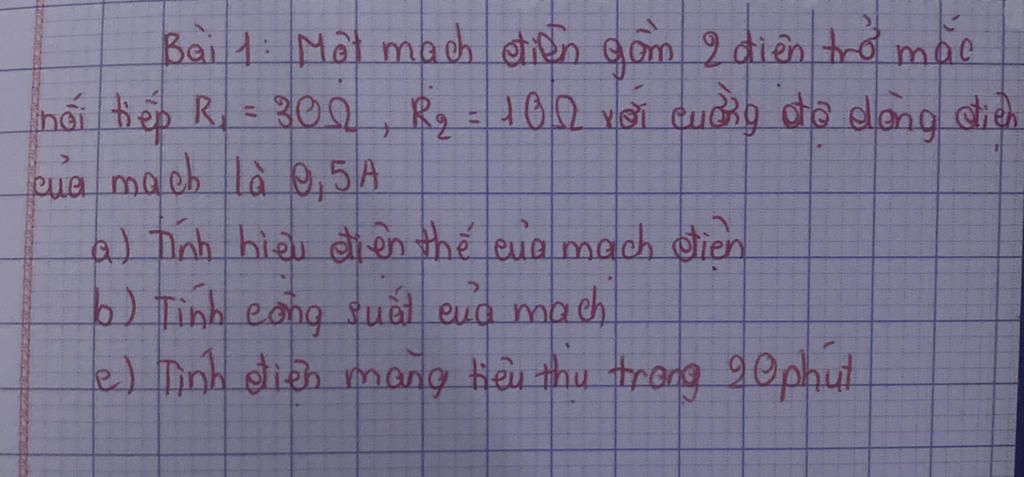 Bài 1: Một mạch điện gồm 2 điện trở mắc
nối tiếp R₁ = 30Ω, R₂ = 10Ω với cường độ dòng điện
của mạch là 0,5A
a) Tính hiệu điện thế của mạch điện
b) Tính công suất của mạch
c) Tính điện năng tiêu thụ trong 20phút